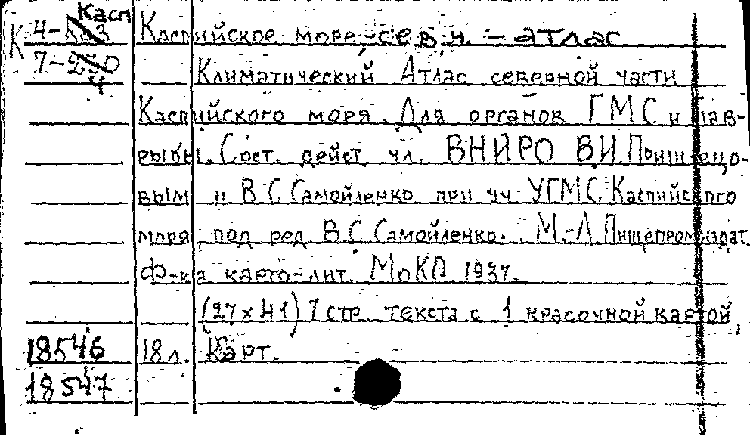 Касп
К 4- Каспийское море-сев.ч. - атлас
7- Климатический Атлас северной части
Каспийского моря. Для органов ГМС и Глав-
рыбы. Сост. дейст. чл. ВНИРО В.И. Пришлецо-
вым и В.С. Самойленко при уч. УГМС Каспийского
моря, под ред. В.С. Самойленко. М.-Л. Пищепромиздат.
Ф-ка карто-лит. 1937.
(27х41) 7 стр. текста с 1 красочной картой,
18546 18 л. Карт.
18547